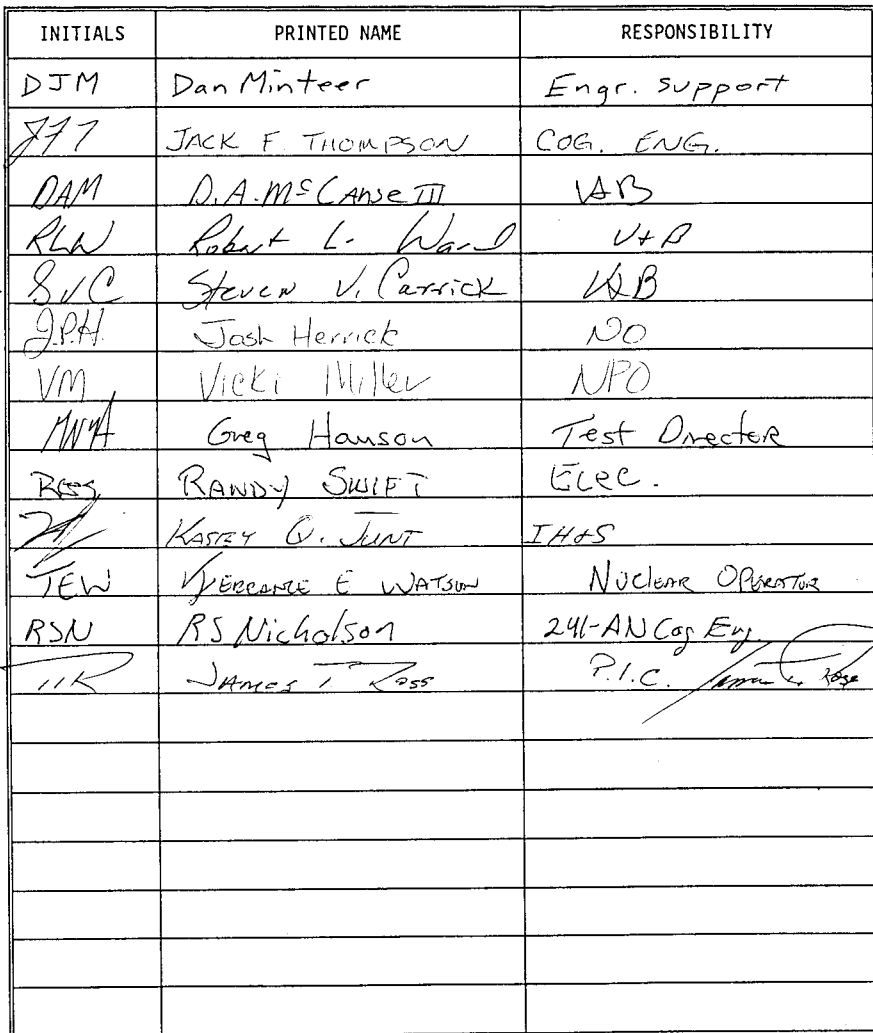 INITIALS PRINTED NAME RESPONSIBILITY
DJM Dan Minteer Engr. Support
JACK F. THOMPSON COG. ENG.
DAM D.A. McCanse III
RLW Robert L. Ward V+B
SVC Steven V. Carrick
J.P.H. Josh Herrick NO
VM Vicki Miller NPO
Greg Hanson Test Director
RANDY SWIFT ELEC.
Q. IH&S
TEW E WATSON NUCLEAR OPERATOR
RSN RS Nicholson 241-AN Cog Eng.
JAMES T Ross P.I.C.